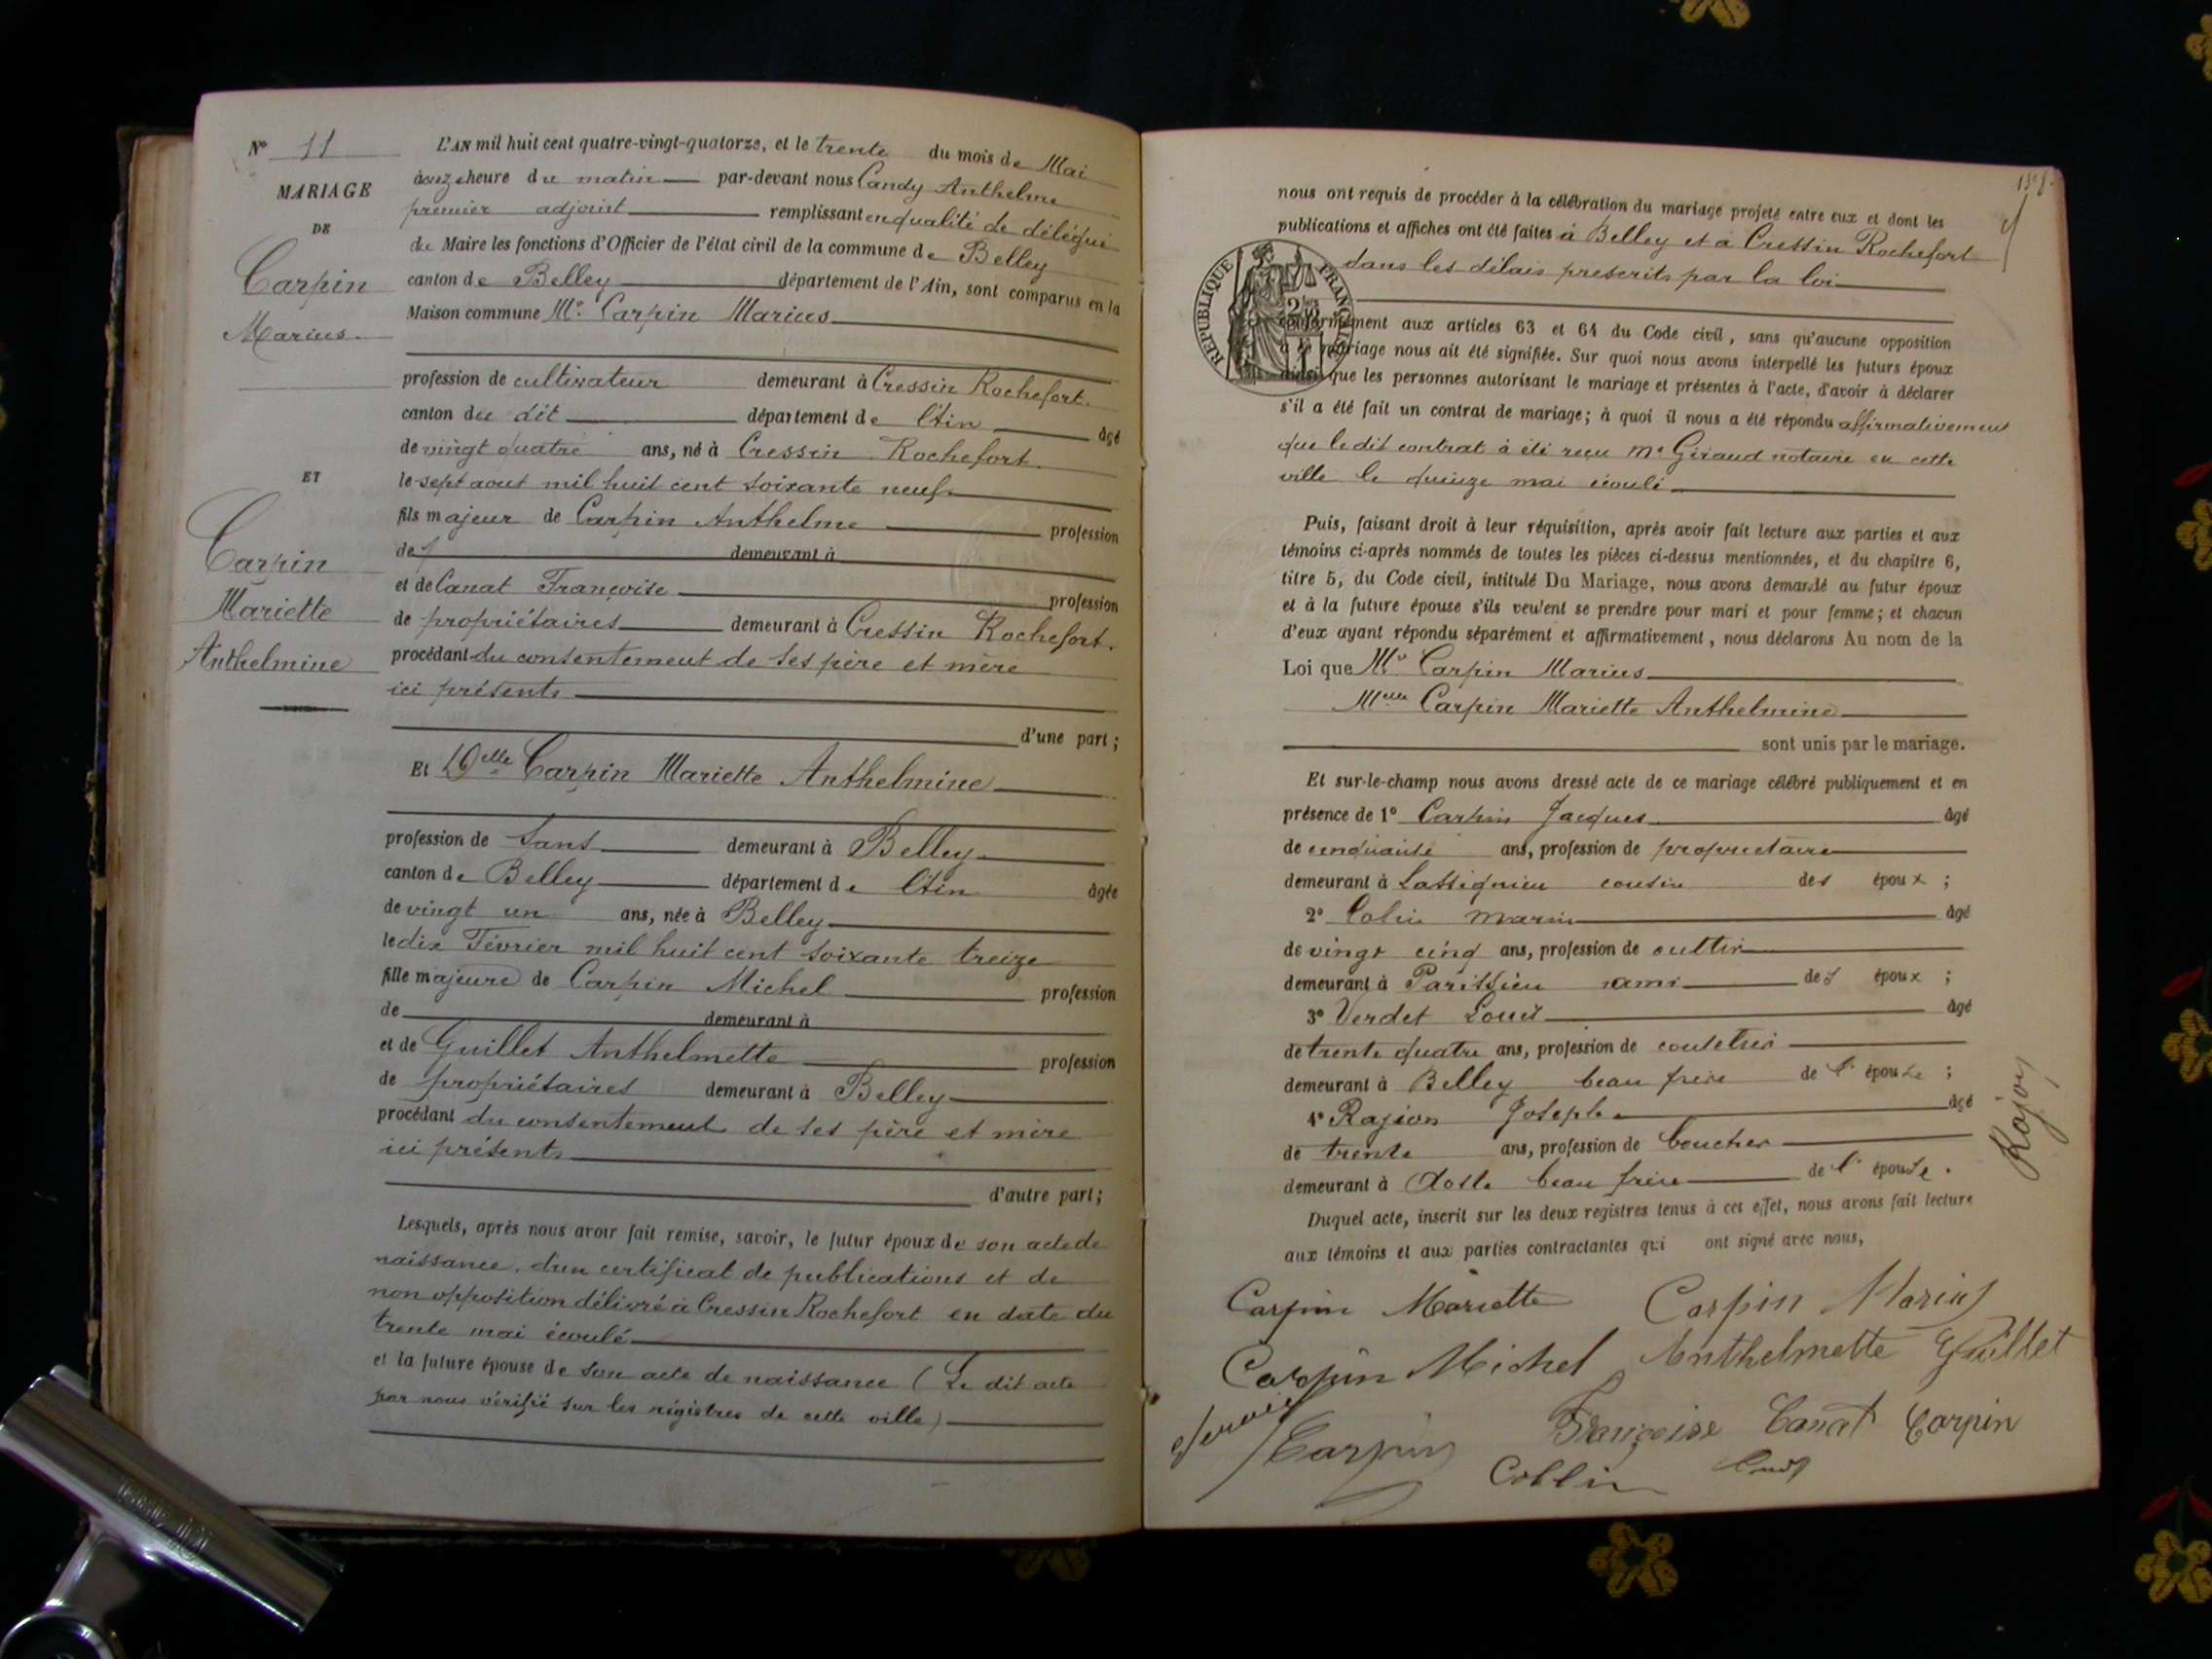 N° 11
MARIAGE
DE
Carpin
Marius.
ET
Carpin
Mariette
Anthelmine
L'AN mil huit cent quatre-vingt-quatorze, et le trente du mois de Mai
à onze heure du matin par-devant nous Candy Anthelme
premier adjoint remplissant en qualité de délégué
du Maire les fonctions d'Officier de l'état civil de la commune de Belley
canton de Belley département de l'Ain, sont comparus en la
Maison commune Mr Carpin Marius
profession de cultivateur demeurant à Cressin Rochefort.
canton du dit département de l'Ain âgé
de vingt quatre ans, né à Cressin Rochefort.
le sept aout mil huit cent soixante neuf
fils majeur de Carpin Anthelme profession
de demeurant à
et de Canat Françoise profession
de propriétaires demeurant à Cressin Rochefort.
procédant du consentement de ses père et mère
ici présents
d'une part;
Et Delle Carpin Mariette Anthelmine
profession de Sans demeurant à Belley
canton de Belley département de l'Ain âgée
de vingt un ans, née à Belley
le dix Février mil huit cent soixante treize
fille majeure de Carpin Michel profession
de demeurant à
et de Guillet Anthelmette profession
de propriétaires demeurant à Belley
procédant du consentement de ses père et mère
ici présents
d'autre part;
Lesquels, après nous avoir fait remise, savoir, le futur époux de son acte de
naissance, d'un certificat de publications et de
non opposition délivré à Cressin Rochefort en date du
trente mai écoulé
et la future épouse de son acte de naissance (Le dit acte
par nous vérifié sur les régistres de cette ville)
nous ont requis de procéder à la célébration du mariage projeté entre eux et dont les
publications et affiches ont été faites à Belley et à Cressin Rochefort
dans les délais prescrits par la loi
RÉPUBLIQUE FRANÇAISE
conformément aux articles 63 et 64 du Code civil, sans qu'aucune opposition
à ce mariage nous ait été signifiée. Sur quoi nous avons interpellé les futurs époux
ainsi que les personnes autorisant le mariage et présentes à l'acte, d'avoir à déclarer
s'il a été fait un contrat de mariage; à quoi il nous a été répondu affirmativement
que le dit contrat à été reçu Me Giraud notaire en cette
ville le quinze mai écoulé
Puis, faisant droit à leur réquisition, après avoir fait lecture aux parties et aux
témoins ci-après nommés de toutes les pièces ci-dessus mentionnées, et du chapitre 6,
titre 5, du Code civil, intitulé Du Mariage, nous avons demandé au futur époux
et à la future épouse s'ils veulent se prendre pour mari et pour femme; et chacun
d'eux ayant répondu séparément et affirmativement, nous déclarons Au nom de la
Loi que Mr Carpin Marius
Melle Carpin Mariette Anthelmine
sont unis par le mariage.
Et sur-le-champ nous avons dressé acte de ce mariage célébré publiquement et en
présence de 1° Carpin Jacques âgé
de cinquante ans, profession de propriétaire
demeurant à Lassignieu cousin des époux;
2° Colin Marin âgé
de vingt cinq ans, profession de cultivr
demeurant à Parissieu ami des époux;
3° Verdet Louis âgé
de trente quatre ans, profession de
demeurant à Belley beau frère de l'épouse;
4° Rajion Joseph âgé
de trente ans, profession de boucher
demeurant à Aoste beau frère de l'épouse.
Duquel acte, inscrit sur les deux registres tenus à cet effet, nous avons fait lecture
aux témoins et aux parties contractantes qui ont signé avec nous,
Carpin Mariette Carpin Marius
Carpin Michel Anthelmette Guillet
Carpin Françoise Canat Carpin
Collin
Rajon